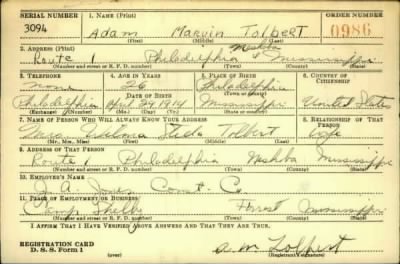 SERIAL NUMBER 1. NAME (Print) ORDER NUMBER
3094 Adam Marvin Tolbert 0986
(First) (Middle) (Last)
2. ADDRESS (Print)
Route 1 Philadelphia Neshba Mississippi
(Number and street or R. F. D. number) (Town) (County) (State)
3. TELEPHONE 4. AGE IN YEARS 5. PLACE OF BIRTH 6. COUNTRY OF CITIZENSHIP
none 26 Philadelphia
DATE OF BIRTH (Town or county)
Philadelphia April 29 1914 Mississippi United States
(Exchange) (Number) (Mo.) (Day) (Yr.) (State or country)
7. NAME OF PERSON WHO WILL ALWAYS KNOW YOUR ADDRESS 8. RELATIONSHIP OF THAT PERSON
Thelma Tolbert wife
(Mr., Mrs., Miss) (First) (Middle) (Last)
9. ADDRESS OF THAT PERSON
Route 1 Philadelphia Neshba Mississippi
(Number and street or R. F. D. number) (Town) (County) (State)
10. EMPLOYER'S NAME
J. A. Jones Const. Co
11. PLACE OF EMPLOYMENT OR BUSINESS
Camp Shelby Forrest Mississippi
(Number and street or R. F. D. number) (Town) (County) (State)
I AFFIRM THAT I HAVE VERIFIED ABOVE ANSWERS AND THAT THEY ARE TRUE.
REGISTRATION CARD
D. S. S. Form 1 (over) A. M. Tolbert
(Registrant's signature)